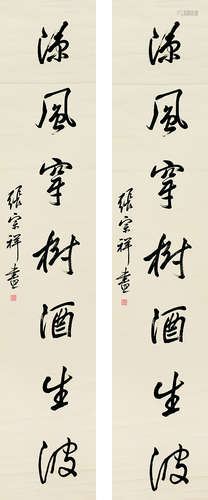 凉风穿树酒生波
張宗祥書
凉风穿树酒生波
張宗祥書